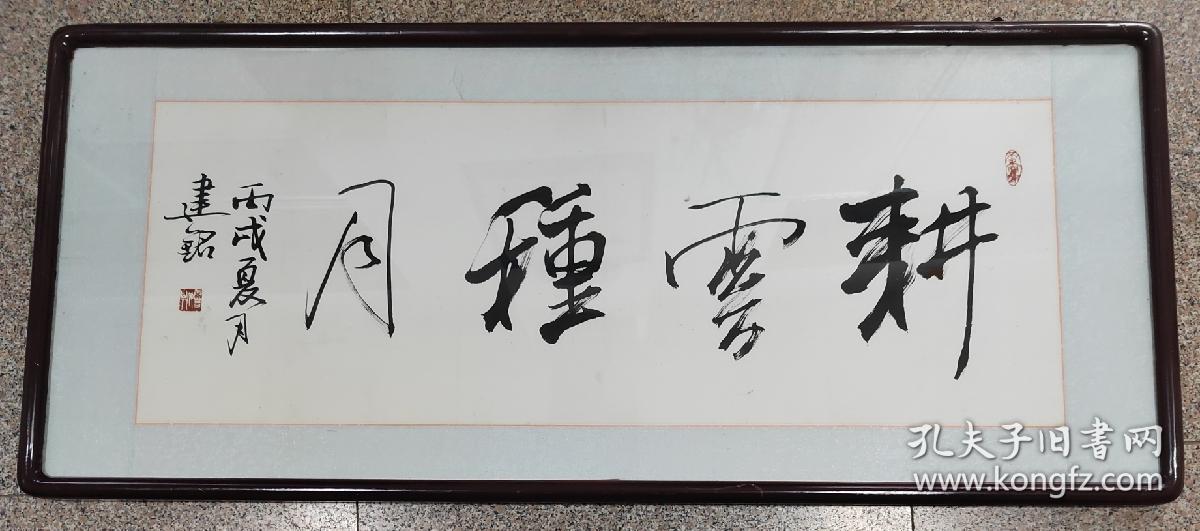 耕雲種月
丙戌夏月
建銘
孔夫子旧書网
www.kongfz.com